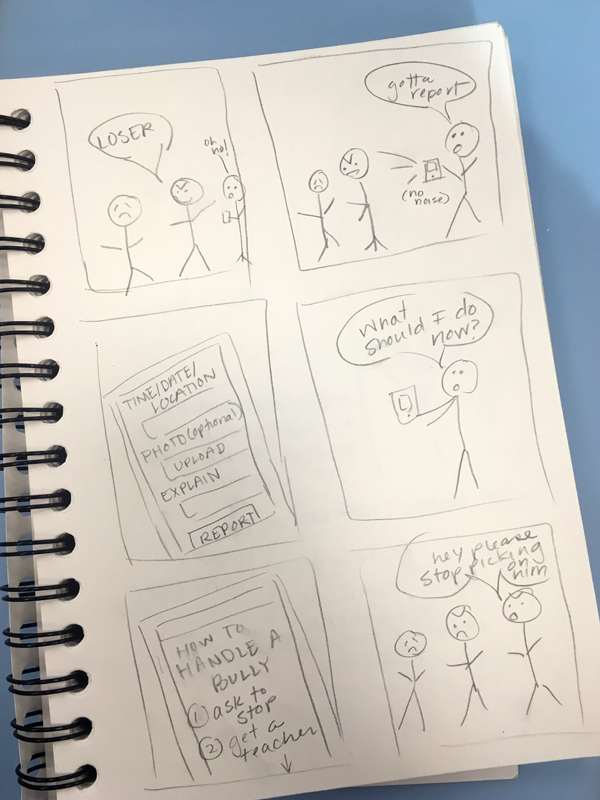 LOSER
oh
no!
gotta
report
(no
noise)
TIME/DATE/
LOCATION
PHOTO(optional)
UPLOAD
EXPLAIN
REPORT
What
should I do
now?
HOW TO
HANDLE A
BULLY
① ask to
stop
② get a
teacher
hey please
stop picking
on
him